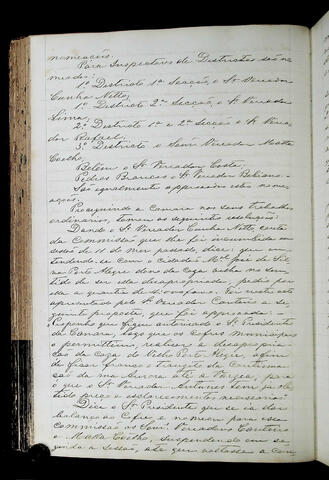 nomeações.
Para Inspectores de Districtos são no-
meados:
1º Districto 1ª Secção, o Sr. Vereador
Cunha Netto,
1º Districto 2ª Secção, o Sr. Vereador
Lima;
2º Districto 1ª e 2ª Secção o Sr. Verea-
dor Rafael;
3º Districto o Senr. Vereador Matta
Coelho,
Belem o Sr. Vereador Costa,
Pedras Brancas o Sr. Vereador
São egualmente approvadas estas nome-
ações.
Proseguindo a Camara nos seus trabalhos
ordinarios, tomou as seguintes resoluções:
Dando o Sr. Vereador Cunha Netto conta
da Commissão que lhe foi incumbida em
sessão de 11 do mez passado, disse, que en-
tendendo-se com o cidadão Mel. José de Sil-
va Porto Alegre dono da casa velha no sen-
tido de ser ella desapropriada, pedio por
ella a quantia de Foi neste acto
apresentada pelo Sr. Vereador Canteiro a se-
guinte proposta, que foi approvada:
Proponho que fique autorisado o Sr. Presidente
da Camara, logo que os Cofres Municipaes
o permittirem, realisar a desapropria-
ção da casa do Velho Porto Alegre, afim
de ficar franco o transito da continua-
ção da rua Aurora até a Varzea, para
o que o Sr. Vereador Antunes tem já ob-
tido preço e esclarecimentos necessarios.
Disse o Sr. Presidente que se ia dar
balanço ao Cofre e nomear para essa
commissão os Senrs. Vereadores Canteiro
e Matta Coelho, suspendendo em se-
guida a sessão, até que voltasse a com